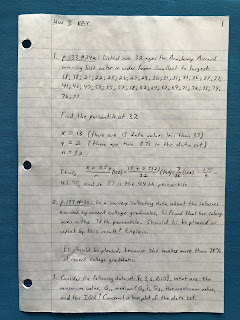 HW 3 KEY 1
1. p.133 #24a: Listed are 32 ages for Academy Award
winning best actors in order from smallest to largest:
18; 18; 21; 22; 25; 26; 27; 29; 30; 31; 31; 33; 36; 37; 37;
41; 42; 47; 52; 55; 57; 58; 62; 64; 67; 69; 71; 72; 73; 74;
76; 77
Find the percentile of 37.
x = 13 (there are 13 data values less than 37)
y = 2 (there are two 37's in the data set)
n = 32
Thus, x + 0.5y / n (100) = 13 + 0.5(2) / 32 (100) = 7/16 (100) = 175/4 =
43.75, and so 37 is the 44th percentile.
2. p.133 #30: In a survey collecting data about the salaries
earned by recent college graduates, Li found that her salary
was in the 78th percentile. Should Li be pleased or
upset by this result? Explain.
Li should be pleased, because this makes more than 78%
of recent college graduates.
3. Consider the following data set: what are the
minimum value, Q1, median (Q2), Q3, the maximum value,
and the IQR? Construct a box plot of the data set.